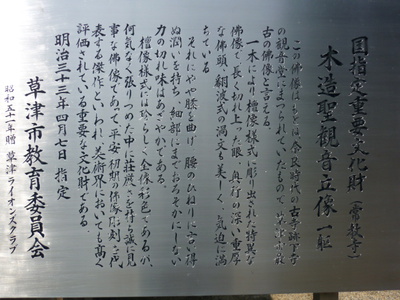 国指定重要文化財(常教寺)
木造聖観音立像一躯
この佛像はもとは奈良時代の古寺
の観音堂にまつられていたもので
古の佛像と言える
一木により檀像様式に彫り出された特異な
佛像で長く切れ上った眼、奥行の深い重厚
な佛頭、翻波式の渦文も美しく、気迫に満
ちている
それにやや膝を曲げ腰のひねりに言い得
ぬ潤いを持ち、細部にまでおろそかにしない
力の切れ味はあざやかである
檀像様式には珍らしく全体彩色であるが、
何気なく張りつめた中に荘厳さを持ち誠に見
事な佛像であって、平安初期の佛像彫刻を代
表する傑作といわれ、美術界においても高く
評価されている重要な文化財である
明治三十三年四月七日 指定
草津市教育委員会
昭和五十一年贈 草津ライオンズクラブ